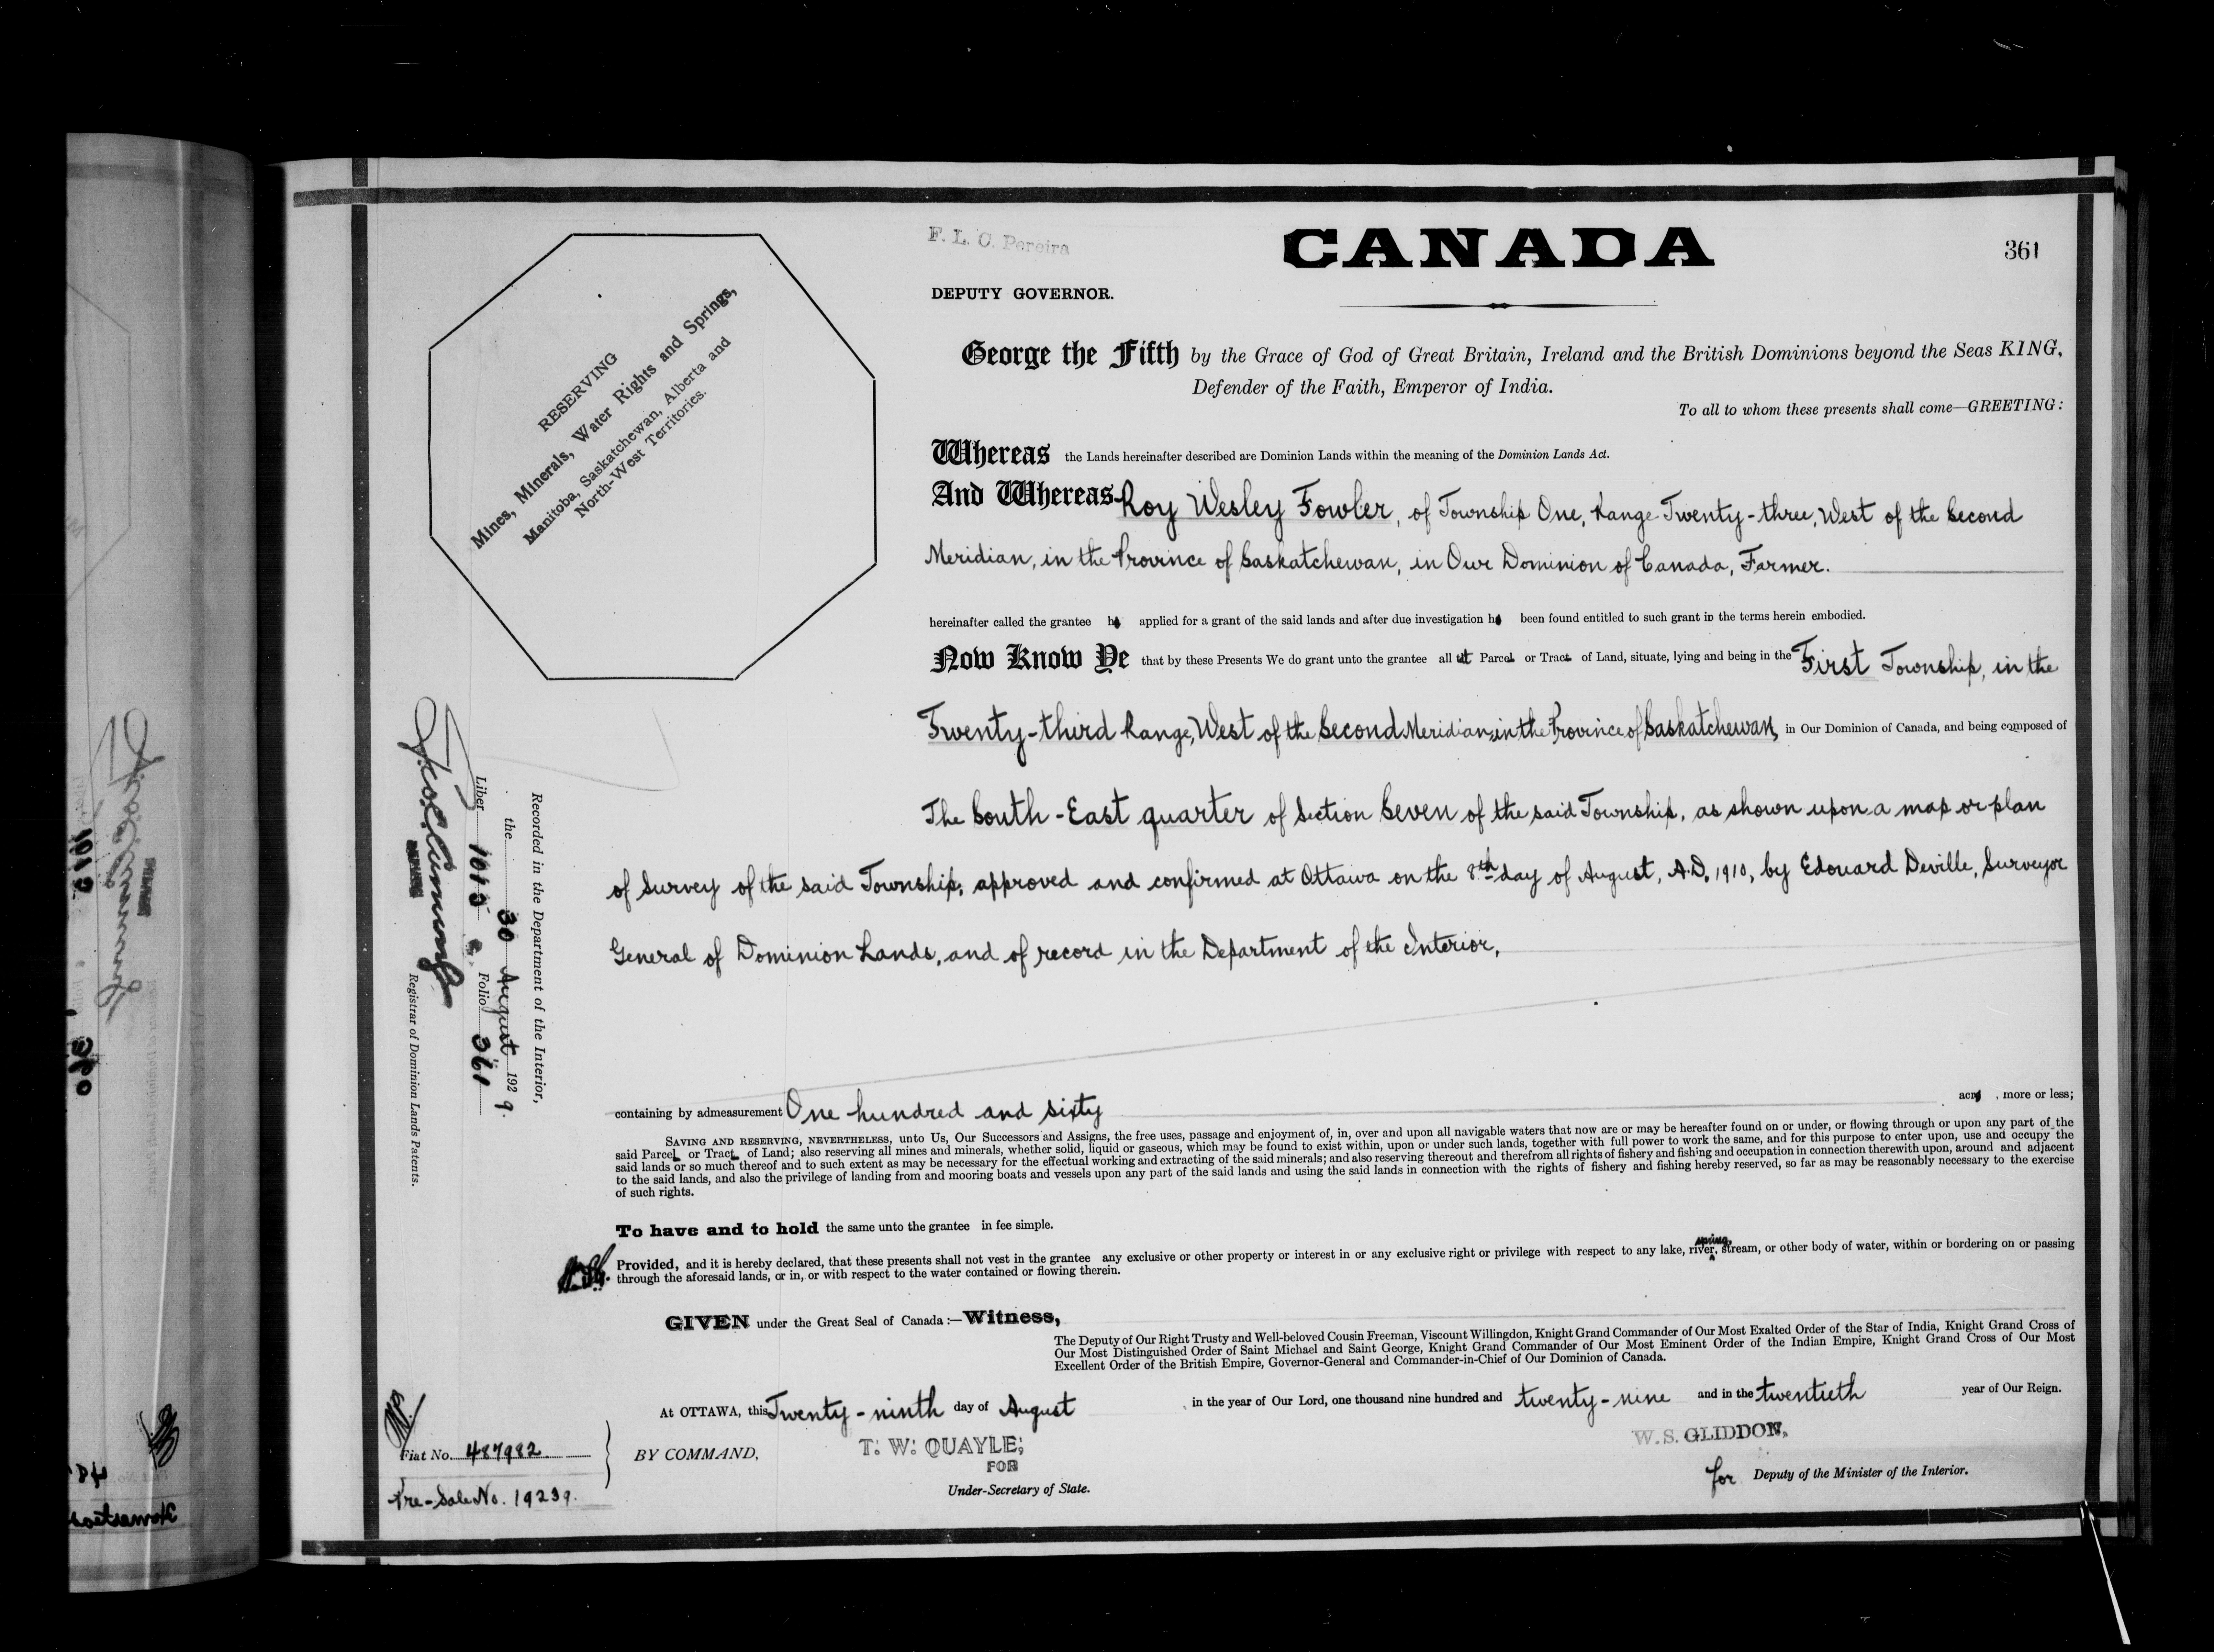 F. L. C. Pereira
CANADA
361
DEPUTY GOVERNOR.
RESERVING
Mines, Minerals, Water Rights and Springs,
Manitoba, Saskatchewan, Alberta and
North-West Territories.
George the Fifth by the Grace of God of Great Britain, Ireland and the British Dominions beyond the Seas KING,
Defender of the Faith, Emperor of India.
To all to whom these presents shall come—GREETING:
Whereas the Lands hereinafter described are Dominion Lands within the meaning of the Dominion Lands Act.
And Whereas Roy Wesley Fowler, of Township One, Range Twenty-three, West of the Second
Meridian, in the Province of Saskatchewan, in Our Dominion of Canada, Farmer.
hereinafter called the grantee applied for a grant of the said lands and after due investigation been found entitled to such grant in the terms herein embodied.
Now Know Ye that by these Presents We do grant unto the grantee all Parcel or Tract of Land, situate, lying and being in the First Township, in the
Twenty-third Range, West of the Second Meridian, in the Province of Saskatchewan, in Our Dominion of Canada, and being composed of
The South-East quarter of Section Seven of the said Township, as shown upon a map or plan
of Survey of the said Township, approved and confirmed at Ottawa on the 8th day of August, A.D. 1910, by Edouard Deville, Surveyor
General of Dominion Lands, and of record in the Department of the Interior,
Recorded in the Department of the Interior,
the 30 August 1929.
Liber 1015 Folio 361
Registrar of Dominion Lands Patents.
containing by admeasurement One hundred and sixty acres, more or less;
SAVING AND RESERVING, NEVERTHELESS, unto Us, Our Successors and Assigns, the free uses, passage and enjoyment of, in, over and upon all navigable waters that now are or may be hereafter found on or under, or flowing through or upon any part of the
said Parcel or Tract of Land; also reserving all mines and minerals, whether solid, liquid or gaseous, which may be found to exist within, upon or under such lands, together with full power to work the same, and for this purpose to enter upon, use and occupy the
said lands or so much thereof and to such extent as may be necessary for the effectual working and extracting of the said minerals; and also reserving thereout and therefrom all rights of fishery and fishing and occupation in connection therewith upon, around and adjacent
to the said lands, and also the privilege of landing from and mooring boats and vessels upon any part of the said lands and using the said lands in connection with the rights of fishery and fishing hereby reserved, so far as may be reasonably necessary to the exercise
of such rights.
To have and to hold the same unto the grantee in fee simple.
spring,
Provided, and it is hereby declared, that these presents shall not vest in the grantee any exclusive or other property or interest in or any exclusive right or privilege with respect to any lake, river, stream, or other body of water, within or bordering on or passing
through the aforesaid lands, or in, or with respect to the water contained or flowing therein.
GIVEN under the Great Seal of Canada :—Witness,
The Deputy of Our Right Trusty and Well-beloved Cousin Freeman, Viscount Willingdon, Knight Grand Commander of Our Most Exalted Order of the Star of India, Knight Grand Cross of
Our Most Distinguished Order of Saint Michael and Saint George, Knight Grand Commander of Our Most Eminent Order of the Indian Empire, Knight Grand Cross of Our Most
Excellent Order of the British Empire, Governor-General and Commander-in-Chief of Our Dominion of Canada.
At OTTAWA, this Twenty-ninth day of August, in the year of Our Lord, one thousand nine hundred and twenty-nine and in the twentieth year of Our Reign.
BY COMMAND,
T. W. QUAYLE,
FOR
Under-Secretary of State.
W. S. GLIDDON,
for Deputy of the Minister of the Interior.
Fiat No. 487982
Pre-Sale No. 19239.